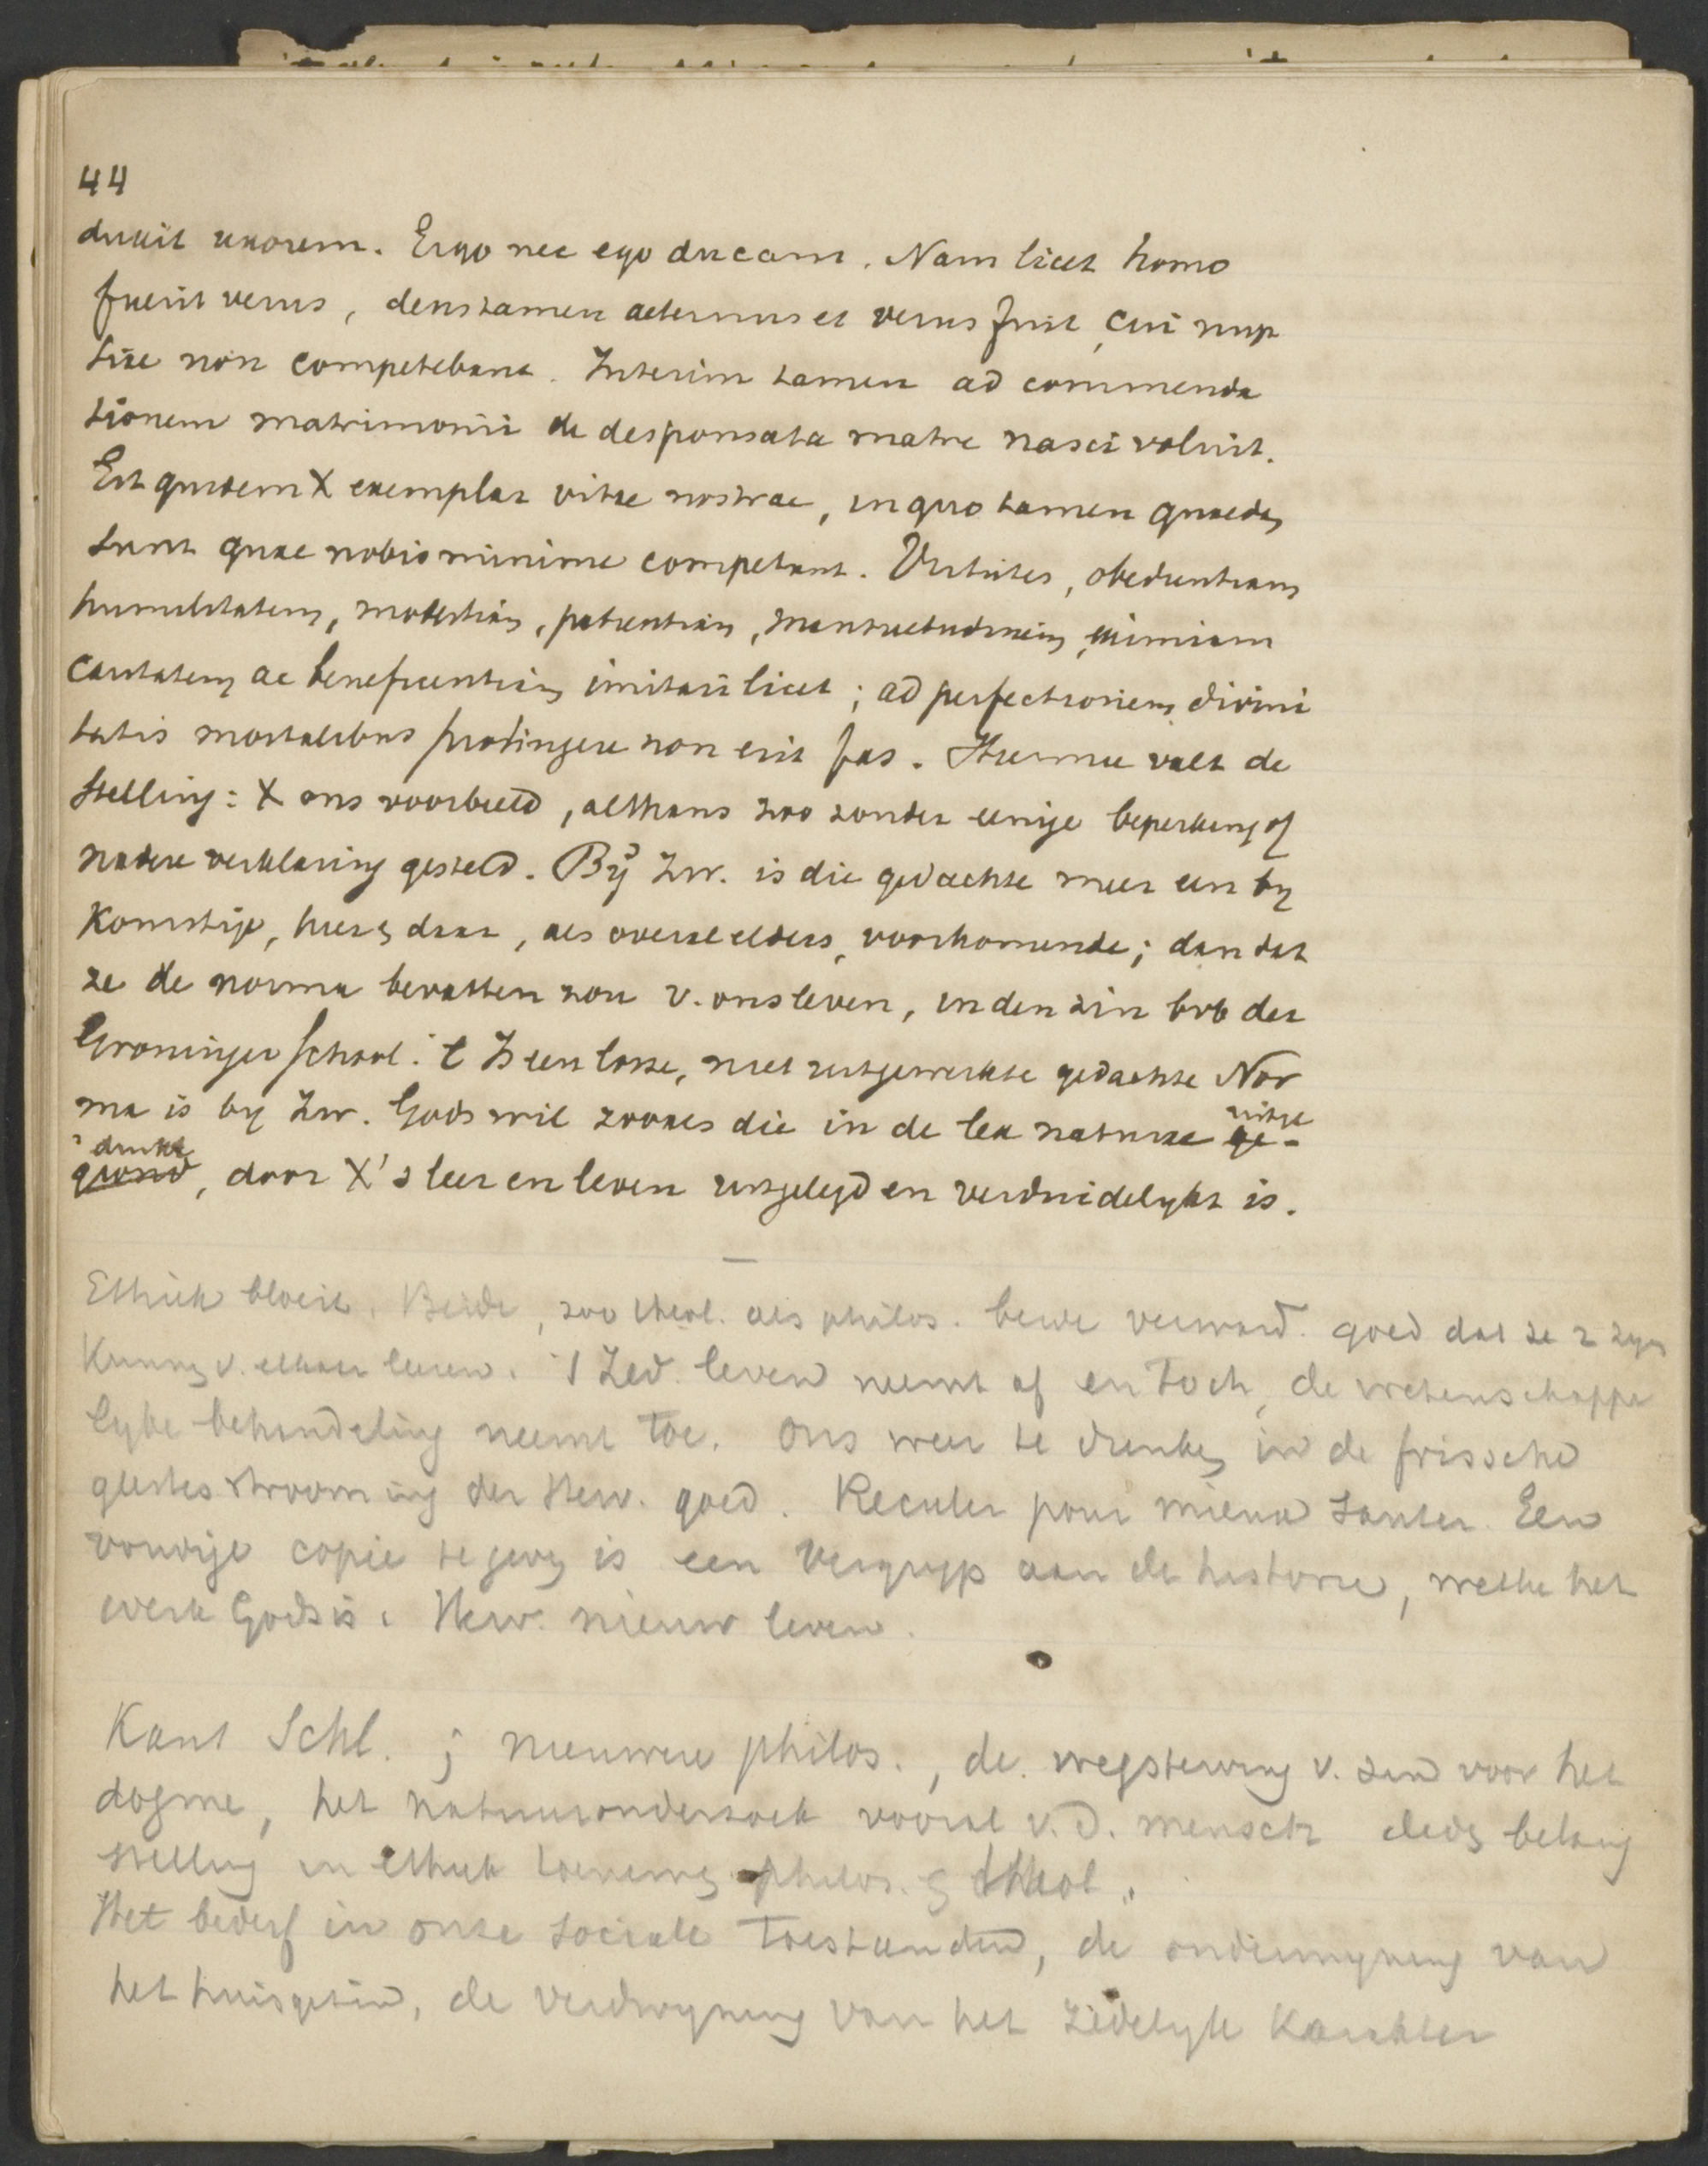 44
duxit uxorem. Ergo nec ego ducam. Nam licet homo
fuerit verus, deus tamen aeternus et verus fuit, cui nup
tiae non competebant. Interim tamen ad commenda
tionem matrimonii de desponsata matre nasci voluit.
Est quidem X exemplar vitae nostrae, in quo tamen quaedam
sunt quae nobis minime competant. Virtutes, obedientiam
humilitatem, modestiam, patientiam, mansuetudinem, eximiam
caritatem ac beneficentiam imitari licet; ad perfectionem divini
tatis mortalibus pertingere non erit fas. Hiermee valt de
stelling: X ons voorbeeld, althans zoo zonder eenige beperking of
nadere verklaring gesteld. Bij Zw. is die gedachte meer een by
komstige, hier en daar, als overal elders, voorkomende; dan dat
ze de norma bevatten zou v. ons leven, in den zin bvb der
Groninger School. 't Is een losse, niet uitgewerkte gedachte Nor
ma is by Zw. Gods wil zooals die in de lex naturae uitge
ge-
drukt
grond, door X's leer en leven uitgelegd en verduidelykt is.
Ethiek bloeit. Beide, zoo theol. als philos. beide verward. goed dat ze er zyn
Kunnen v. elkaar leeren. 't Zed. leven neemt af en toch, de wetenschappe
lyke behandeling neemt toe. Ons weer te drenken in de frissche
geestesstrooming der Herv. goed. Reculer pour mieux sauter. Een
voudige copie te geven is een vergryp aan de historie, welke het
werk Gods is. Herv. nieuw leven.
Kant Schl. ; nieuwere philos., de wegsterving v. zin voor het
dogme, het natuuronderzoek vooral v.d. mensch deden belang
stelling in ethiek toenemen philos. en theol.
Het bederf in onze sociale toestanden, de ondermyning van
het huisgezin, de verdwyning van het zedelyk karakter